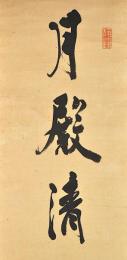 月殿清